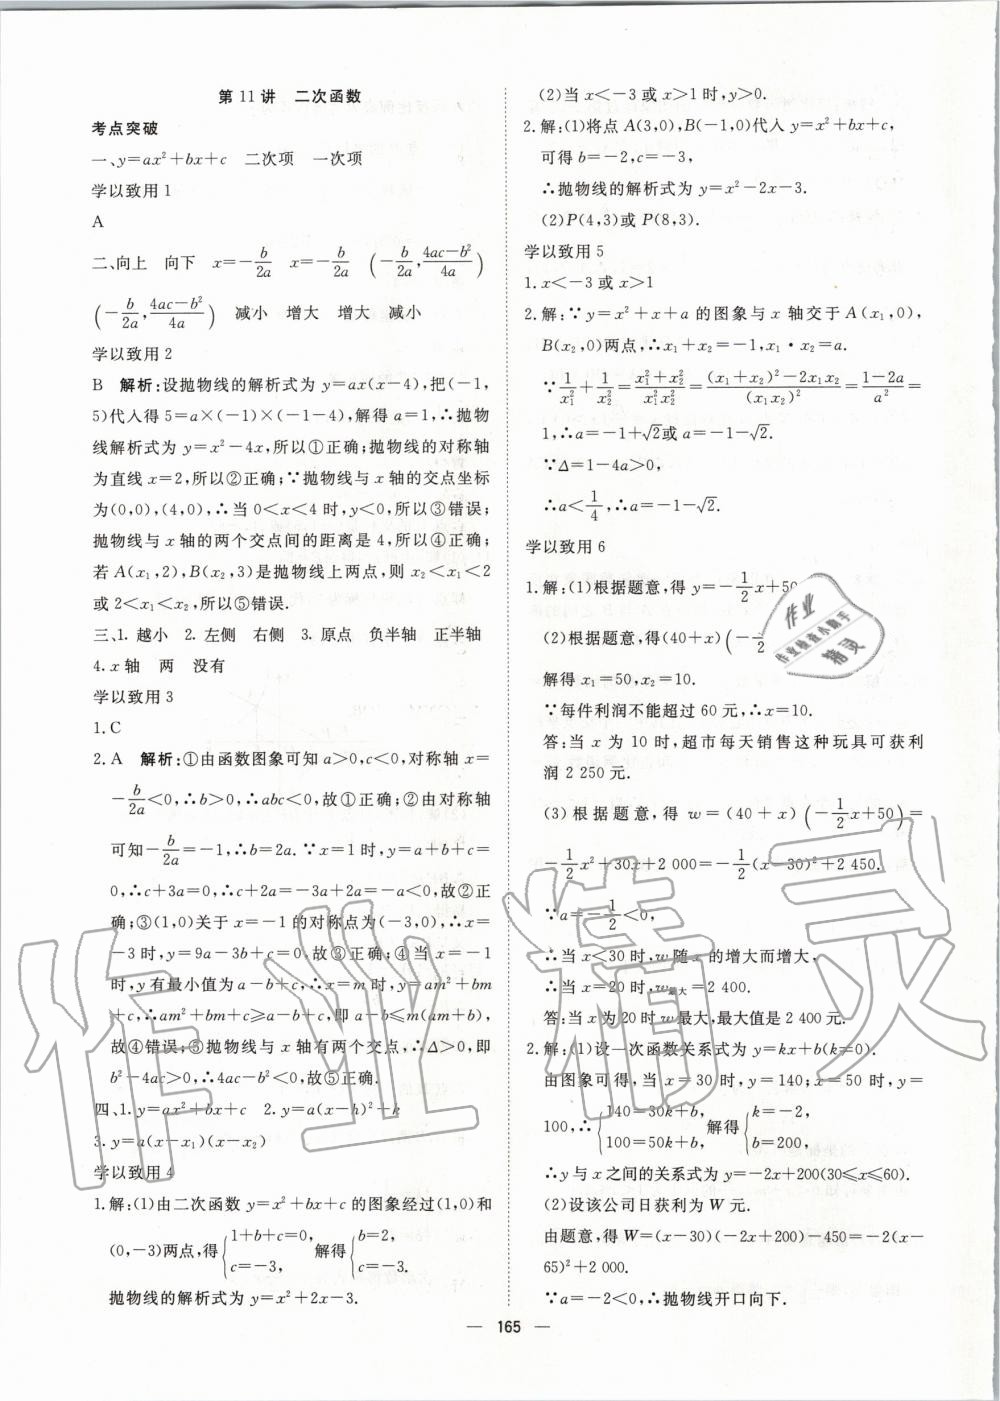 第 11 讲 二次函数
考点突破
一、y=ax²+bx+c 二次项 一次项
学以致用 1
A
二、向上 向下 x=-b/2a x=-b/2a (-b/2a, (4ac-b²)/4a)
(-b/2a, (4ac-b²)/4a) 减小 增大 增大 减小
学以致用 2
B 解析:设抛物线的解析式为 y=ax(x-4),把(-1,
5)代入得 5=a×(-1)×(-1-4),解得 a=1,∴抛物
线解析式为 y=x²-4x,所以①正确;抛物线的对称轴
为直线 x=2,所以②正确;∵抛物线与 x 轴的交点坐标
为(0,0),(4,0),∴当 0<x<4 时,y<0,所以③错误;
抛物线与 x 轴的两个交点间的距离是 4,所以④正确;
若 A(x₁,2),B(x₂,3)是抛物线上两点,则 x₂<x₁<2
或 2<x₁<x₂,所以⑤错误.
三、1. 越小 2. 左侧 右侧 3. 原点 负半轴 正半轴
4. x 轴 两 没有
学以致用 3
1. C
2. A 解析:①由函数图象可知 a>0,c<0,对称轴 x=
-b/2a<0,∴b>0,∴abc<0,故①正确;②由对称轴
可知-b/2a=-1,∴b=2a. ∵x=1 时,y=a+b+c=
0,∴c+3a=0,∴c+2a=-3a+2a=-a<0,故②正
确;③(1,0)关于 x=-1 的对称点为(-3,0),∴x=
-3 时,y=9a-3b+c=0,故③正确;④当 x=-1
时,y 有最小值为 a-b+c,∴x=m 时,y=am²+bm
+c,∴am²+bm+c≥a-b+c,即 a-b≤m(am+b),
故④错误;⑤抛物线与 x 轴有两个交点,∴Δ>0,即
b²-4ac>0,∴4ac-b²<0,故⑤正确.
四、1. y=ax²+bx+c 2. y=a(x-h)²+k
3. y=a(x-x₁)(x-x₂)
学以致用 4
1. 解:(1)由二次函数 y=x²+bx+c 的图象经过(1,0)和
(0,-3)两点,得{1+b+c=0, c=-3, 解得{b=2, c=-3.
抛物线的解析式为 y=x²+2x-3.
(2)当 x<-3 或 x>1 时,y>0.
2. 解:(1)将点 A(3,0),B(-1,0)代入 y=x²+bx+c,
可得 b=-2,c=-3,
∴抛物线的解析式为 y=x²-2x-3.
(2)P(4,3)或 P(8,3).
学以致用 5
1. x<-3 或 x>1
2. 解:∵y=x²+x+a 的图象与 x 轴交于 A(x₁,0),
B(x₂,0)两点,∴x₁+x₂=-1,x₁·x₂=a.
∵1/x₁²+1/x₂²=(x₁²+x₂²)/(x₁²x₂²)=((x₁+x₂)²-2x₁x₂)/(x₁x₂)²=(1-2a)/a²=
1,∴a=-1+√2或 a=-1-√2.
∵Δ=1-4a>0,
∴a<1/4,∴a=-1-√2.
学以致用 6
1. 解:(1)根据题意,得 y=-1/2x+50
(2)根据题意,得(40+x)(-1/2
解得 x₁=50,x₂=10.
∵每件利润不能超过 60 元,∴x=10.
答:当 x 为 10 时,超市每天销售这种玩具可获利
润 2 250 元.
(3)根据题意,得 w=(40+x)(-1/2x+50)=
-1/2x²+30x+2 000=-1/2(x-30)²+2 450.
∵a=-1/2<0,
∴当 x<30 时,w 随 x 的增大而增大,
∴当 x=20 时,w最大=2 400.
答:当 x 为 20 时 w 最大,最大值是 2 400 元.
2. 解:(1)设一次函数关系式为 y=kx+b(k≠0).
由图象可得,当 x=30 时,y=140;x=50 时,y=
100,∴{140=30k+b, 100=50k+b, 解得{k=-2, b=200,
∴y 与 x 之间的关系式为 y=-2x+200(30≤x≤60).
(2)设该公司日获利为 W 元.
由题意,得 W=(x-30)(-2x+200)-450=-2(x-
65)²+2 000.
∵a=-2<0,∴抛物线开口向下.
作业
作业检查小助手
精灵
作业精灵
— 165 —